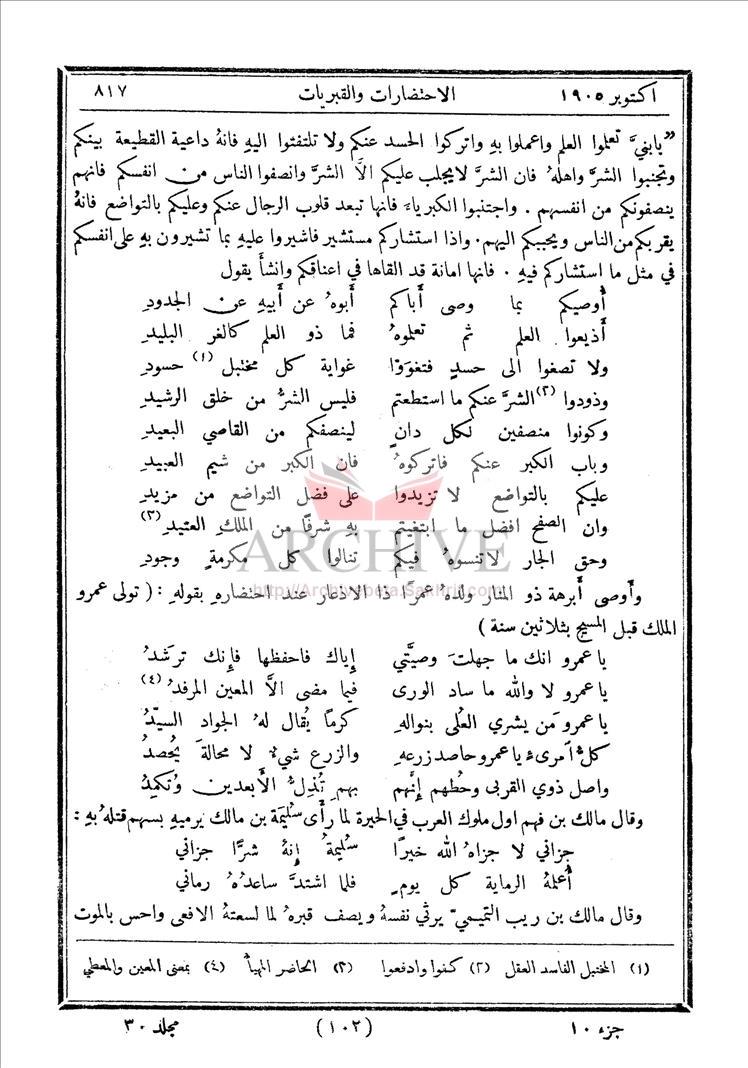 اكتوبر ١٩٠٥ الاحتضارات والقبريات ٨١٧
”يابنيَّ تعلموا العلم واعملوا بهِ واتركوا الحسد عنكم ولا تلتفتوا اليهِ فانهُ داعية القطيعة بينكم
وتجنبوا الشرَّ واهلهُ فان الشرَّ لايجلب عليكم الاَّ الشرَّ وانصفوا الناس من انفسكم فانهم
ينصفونكم من انفسهم . واجتنبوا الكبرياءَ فانها تبعد قلوب الرجال عنكم وعليكم بالتواضع فانهُ
يقربكم من الناس ويحببكم اليهم. واذا استشاركم مستشير فاشيروا عليهِ بما تشيرون بهِ على انفسكم
في مثل ما استشاركم فيهِ . فانها امانة قد القاها في اعناقكم وانشأَ يقول
أُوصيكم بما وصى أَباكم أَبوهُ عن أَبيهِ عن الجدودِ
أَذيعوا العلم ثم تعلموهُ فما ذو العلم كالغر البليدِ
ولا تصغوا الى حسدٍ فتغووَّا غواية كل مختبل (١) حسودِ
وذودوا (٢) الشرَّ عنكم ما استطعتم فليس الشرُّ من خلق الرشيدِ
وكونوا منصفين لكل دانٍ لينصفكم من القاصي البعيدِ
وباب الكبر عنكم فاتركوهُ فان الكبر من شيم العبيدِ
عليكم بالتواضع لا تزيدوا على فضل التواضع من مزيدِ
وان الصفح افضل ما ابتغيتم بهِ شرفًا من الملك العتيدِ (٣)
وحق الجار لا تنسوهُ فيكم تنالوا كل مكرمةٍ وجودِ
ARCHIVE
http://Archivebeta.Sakhrit.com
وأَوصى أَبرهة ذو المنار ولدهُ عمرًا ذا الاذعار عند احتضارهِ بقولهِ : ( تولى عمرو
الملك قبل المسيح بثلاثين سنة )
يا عمرو انك ما جهلتَ وصيَّتي إِياك فاحفظها فإِنك ترشَدُ
يا عمرو لا والله ما ساد الورى فيما مضى الاَّ المعين المرفدُ (٤)
يا عمرو مَن يشري العُلى بنوالهِ كرمًا يُقال لهُ الجواد السيّدُ
كلُّ أمرىءٍ يا عمرو حاصد زرعهِ والزرع شيءٌ لا محالة يُحصدُ
واصل ذوي القربى وحُطهم إِنَّهم بهمِ تُذِلُّ الأَبعدين وتُكمِدُ
وقال مالك بن فهم اول ملوك العرب في الحيرة لما رأَى سُليمَة بن مالك يرميهِ بسهم قتلهُ بهِ :
جزاني لا جزاهُ الله خيرًا سُليمةُ إِنهُ شرًّا جزاني
أُعلمهُ الرماية كل يومٍ فلما اشتدَّ ساعدُهُ رماني
وقال مالك بن ريب التميميّ يرثي نفسهُ ويصف قبرهُ لما لسعتهُ الافعى واحس بالموت
(١) المختبل الفاسد العقل (٢) كفوا وادفعوا (٣) الحاضر المهيأُ (٤) بمعنى المعين والمعطي
جزء ١٠ (١٠٢) مجلد ٣٠